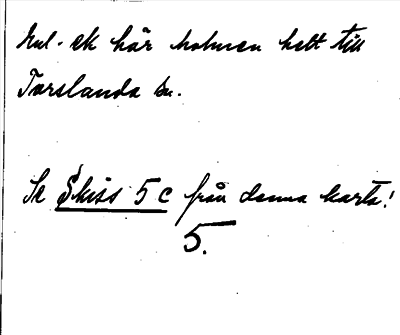 Enl. ek hör holmen helt till
Torslanda sn.
Se Skiss 5 c från denna karta!
5.